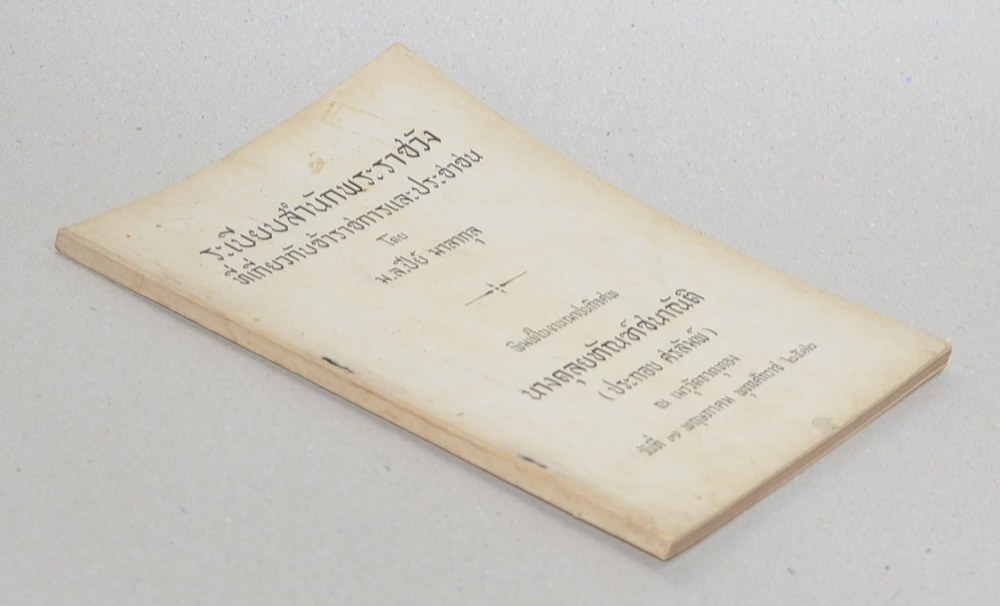 ระเบียบสำนักพระราชวัง
ที่เกี่ยวกับข้าราชการและประชาชน
โดย
ม.ล.ปีย์ มาลากุล
พิมพ์เป็นงานฌาปนกิจศพ
(ประกอบ
ณ เมรุวัดธาตุทอง
วันที่ ๑๑ พฤษภาคม พุทธศักราช ๒๕๑๒